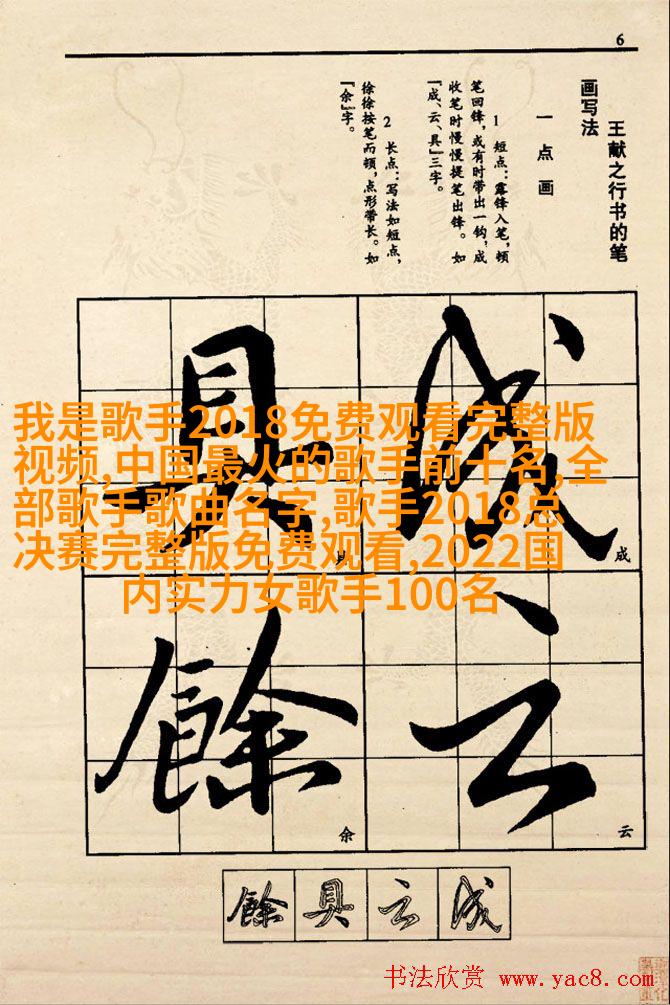 6
王献之行书的笔
画写法
一 点 画
1 短点：露锋入笔，顿
笔回锋，或有时带出一钩，成
收笔时慢慢提笔出锋。如
『成、云、具』三字。
2 长点：写法如短点，
徐徐按笔而顿，点形带长。如
『余』字。
我是歌手2018免费观看完整版
视频,中国最火的歌手前十名,全
部歌手歌曲名字,歌手2018总
决赛完整版免费观看,2022国
内实力女歌手100名
成
具
成
云
餘
云
余
餘 具 云 成
书法欣赏 www.yac8.com